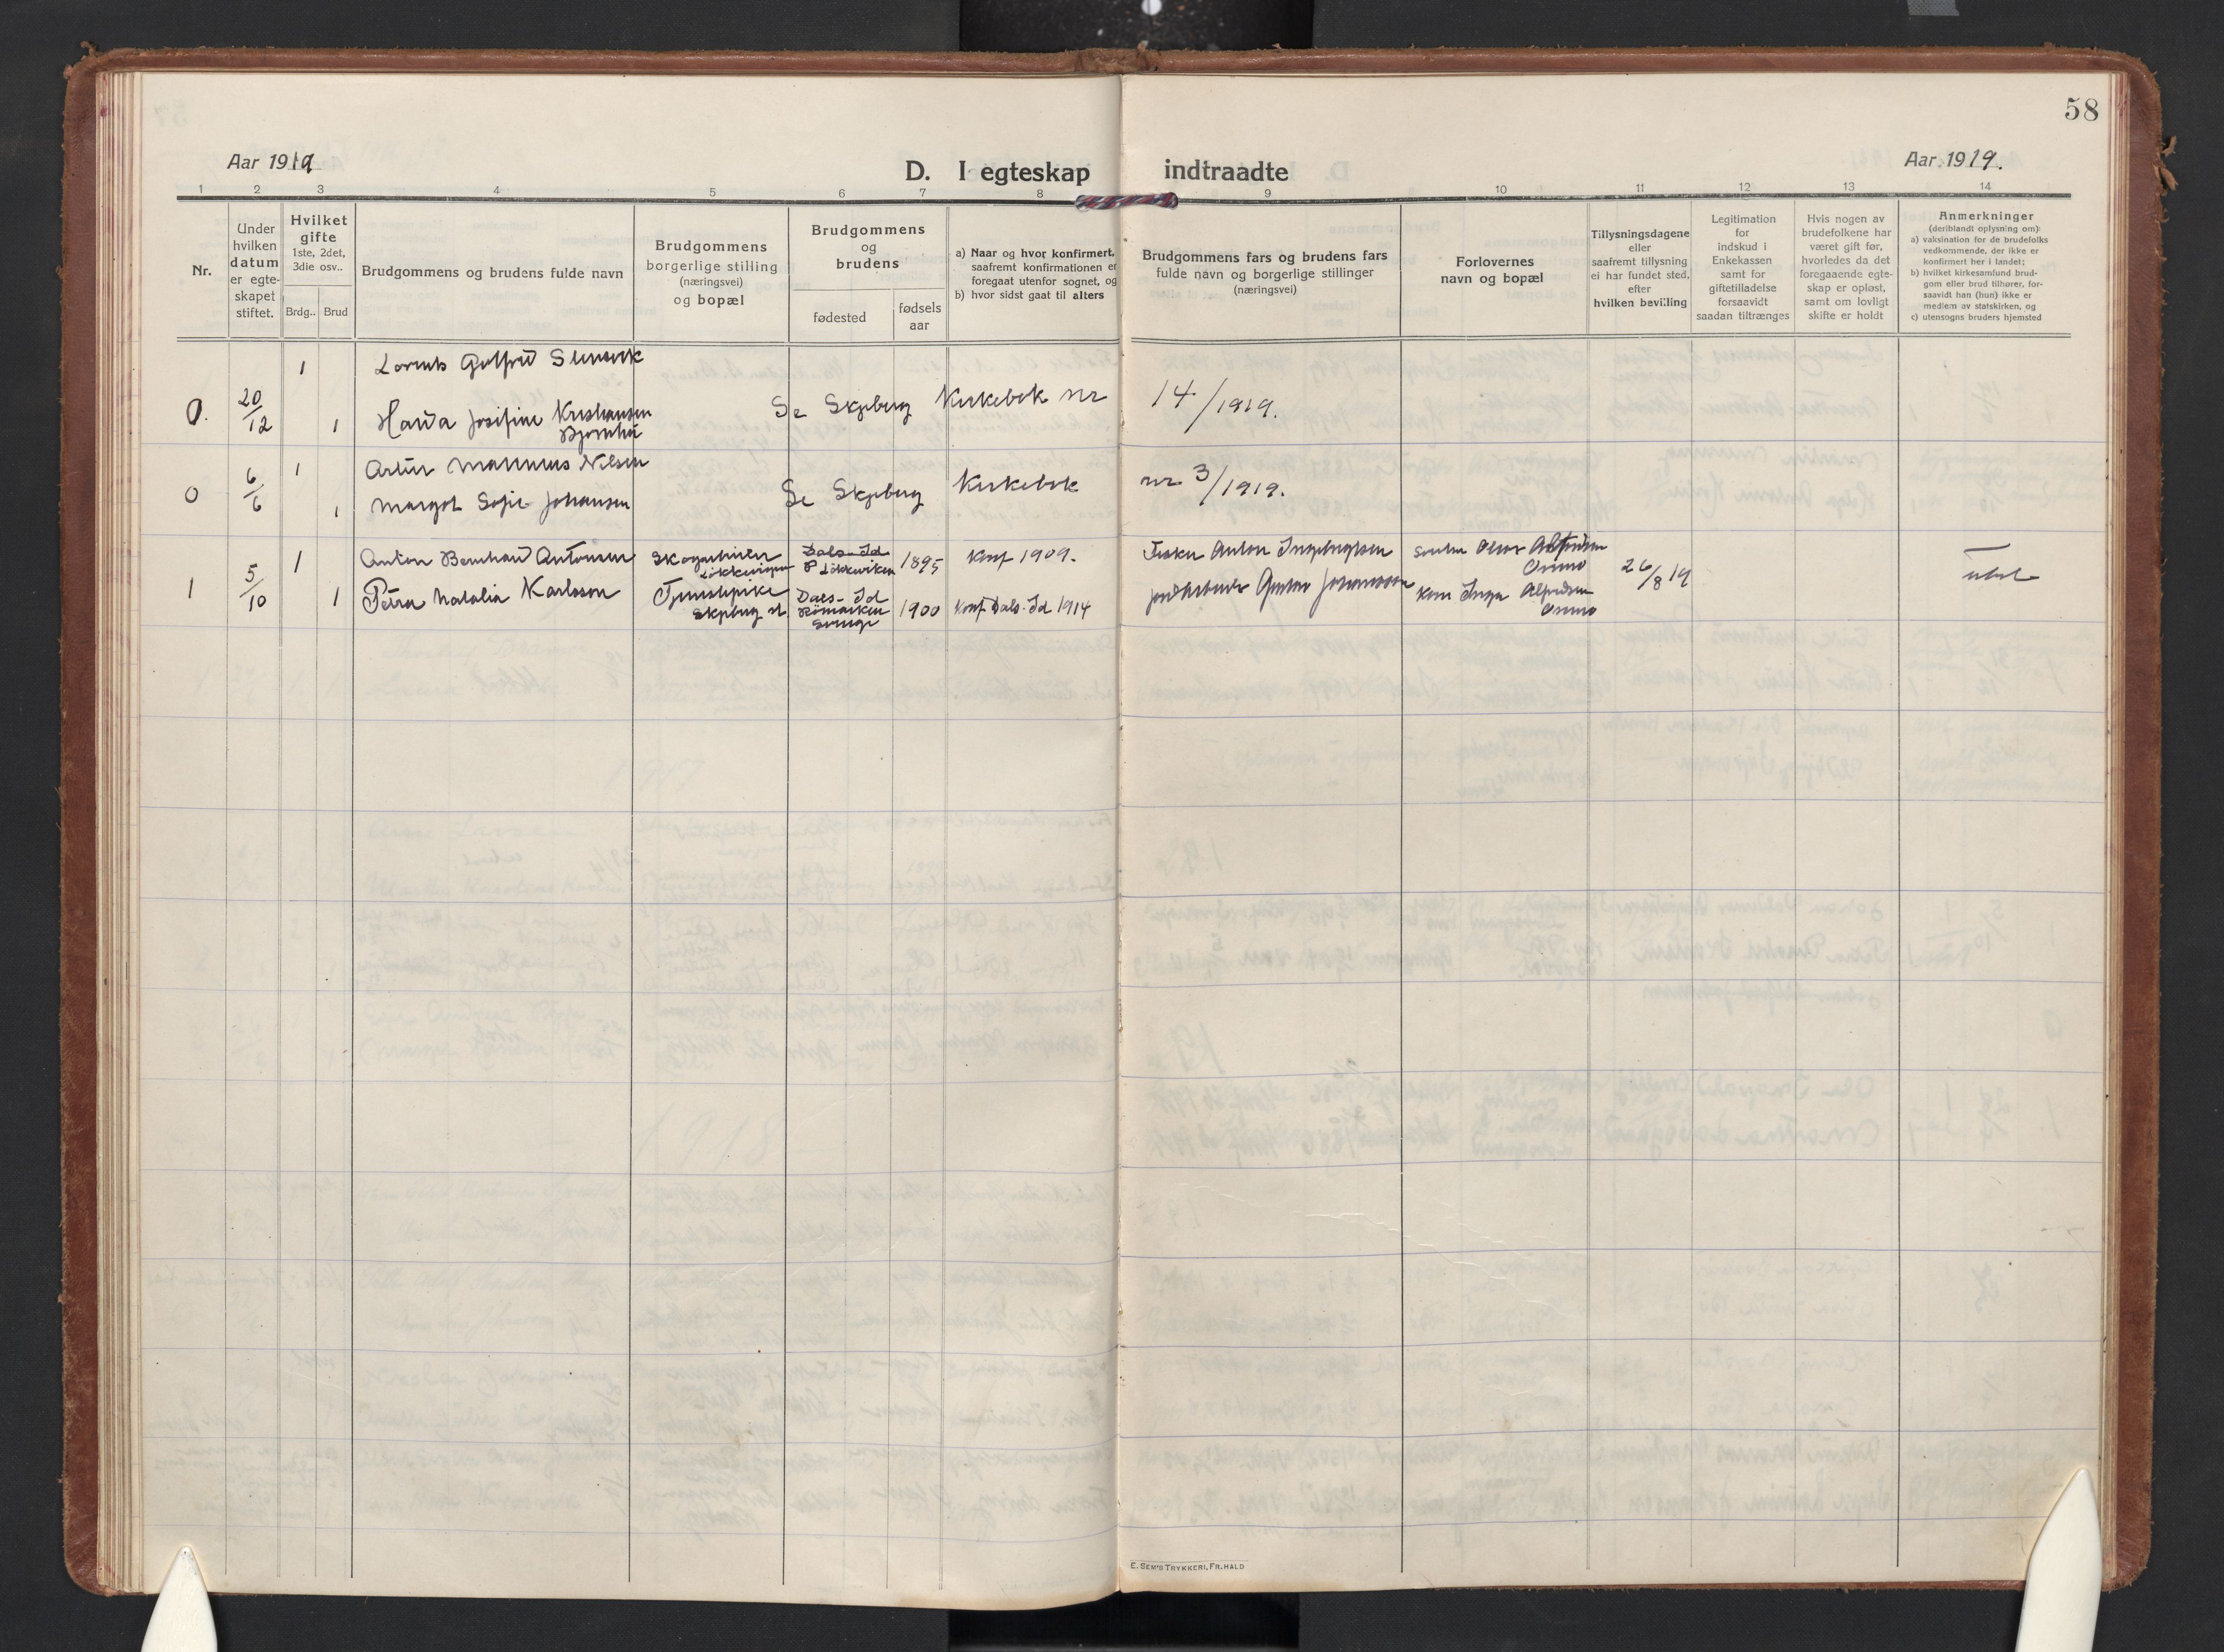 58
Aar 1919
D. I egteskap indtraadte
Aar 1919.
1 2 3 4 5 6 7 8 9 10 11 12 13 14
Nr.
Under
hvilken
datum
er egte-
skapet
stiftet.
Hvilket
gifte
1ste, 2det,
3die osv..
Brdg.. Brud
Brudgommens og brudens fulde navn
Brudgommens
borgerlige stilling
(næringsvei)
og bopæl
Brudgommens
og
brudens
fødested
fødsels
aar
a) Naar og hvor konfirmert,
saafremt konfirmationen er
foregaat utenfor sognet, og
b) hvor sidst gaat til alters
Brudgommens fars og brudens fars
fulde navn og borgerlige stillinger
(næringsvei)
Forlovernes
navn og bopæl
Tillysningsdagene
eller
saafremt tillysning
ei har fundet sted,
efter
hvilken bevilling
Legitimation
for
indskud i
Enkekassen
samt for
giftetilladelse
forsaavidt
saadan tiltrænges
Hvis nogen av
brudefolkene har
været gift før,
hvorledes da det
foregaaende egte-
skap er opløst,
samt om lovligt
skifte er holdt
Anmerkninger
(deriblandt oplysning om):
a) vaksination for de brudefolks
vedkommende, der ikke er
konfirmert her i landet;
b) hvilket kirkesamfund brud-
gom eller brud tilhører, for-
saavidt han (hun) ikke er
medlem av statskirken, og
c) utensogns bruders hjemsted
1 Lorents Gotfred
0. 20/12 1 Harda Josifine Kristiansen
Se Skjeberg Kirkebok nr 14/1919.
6/6 1 Artur Marinius Nilsen
0 1 Margot Sofie Johansen
Se Skjeberg Kirkebok nr 3/1919.
1 Anton Bernhard Antonsen Skogarbeider Dals-Id 1895 Konf 1909. Fisker Anton Ingebrigtsen
Løkkevigen P Løkkeviken
1 5/10 1 Petra Natalia Karlsson Tjenestepike Dals-Id 1900 Konf. Dals-Id 1914 jordarbeider Gustav Johansson
Skjeberg st. Römarken
Sverige
Oscar Alfredsen
26/8 19
Kone Inga Alfredsen
E. SEM'S TRYKKERI, FR.HALD